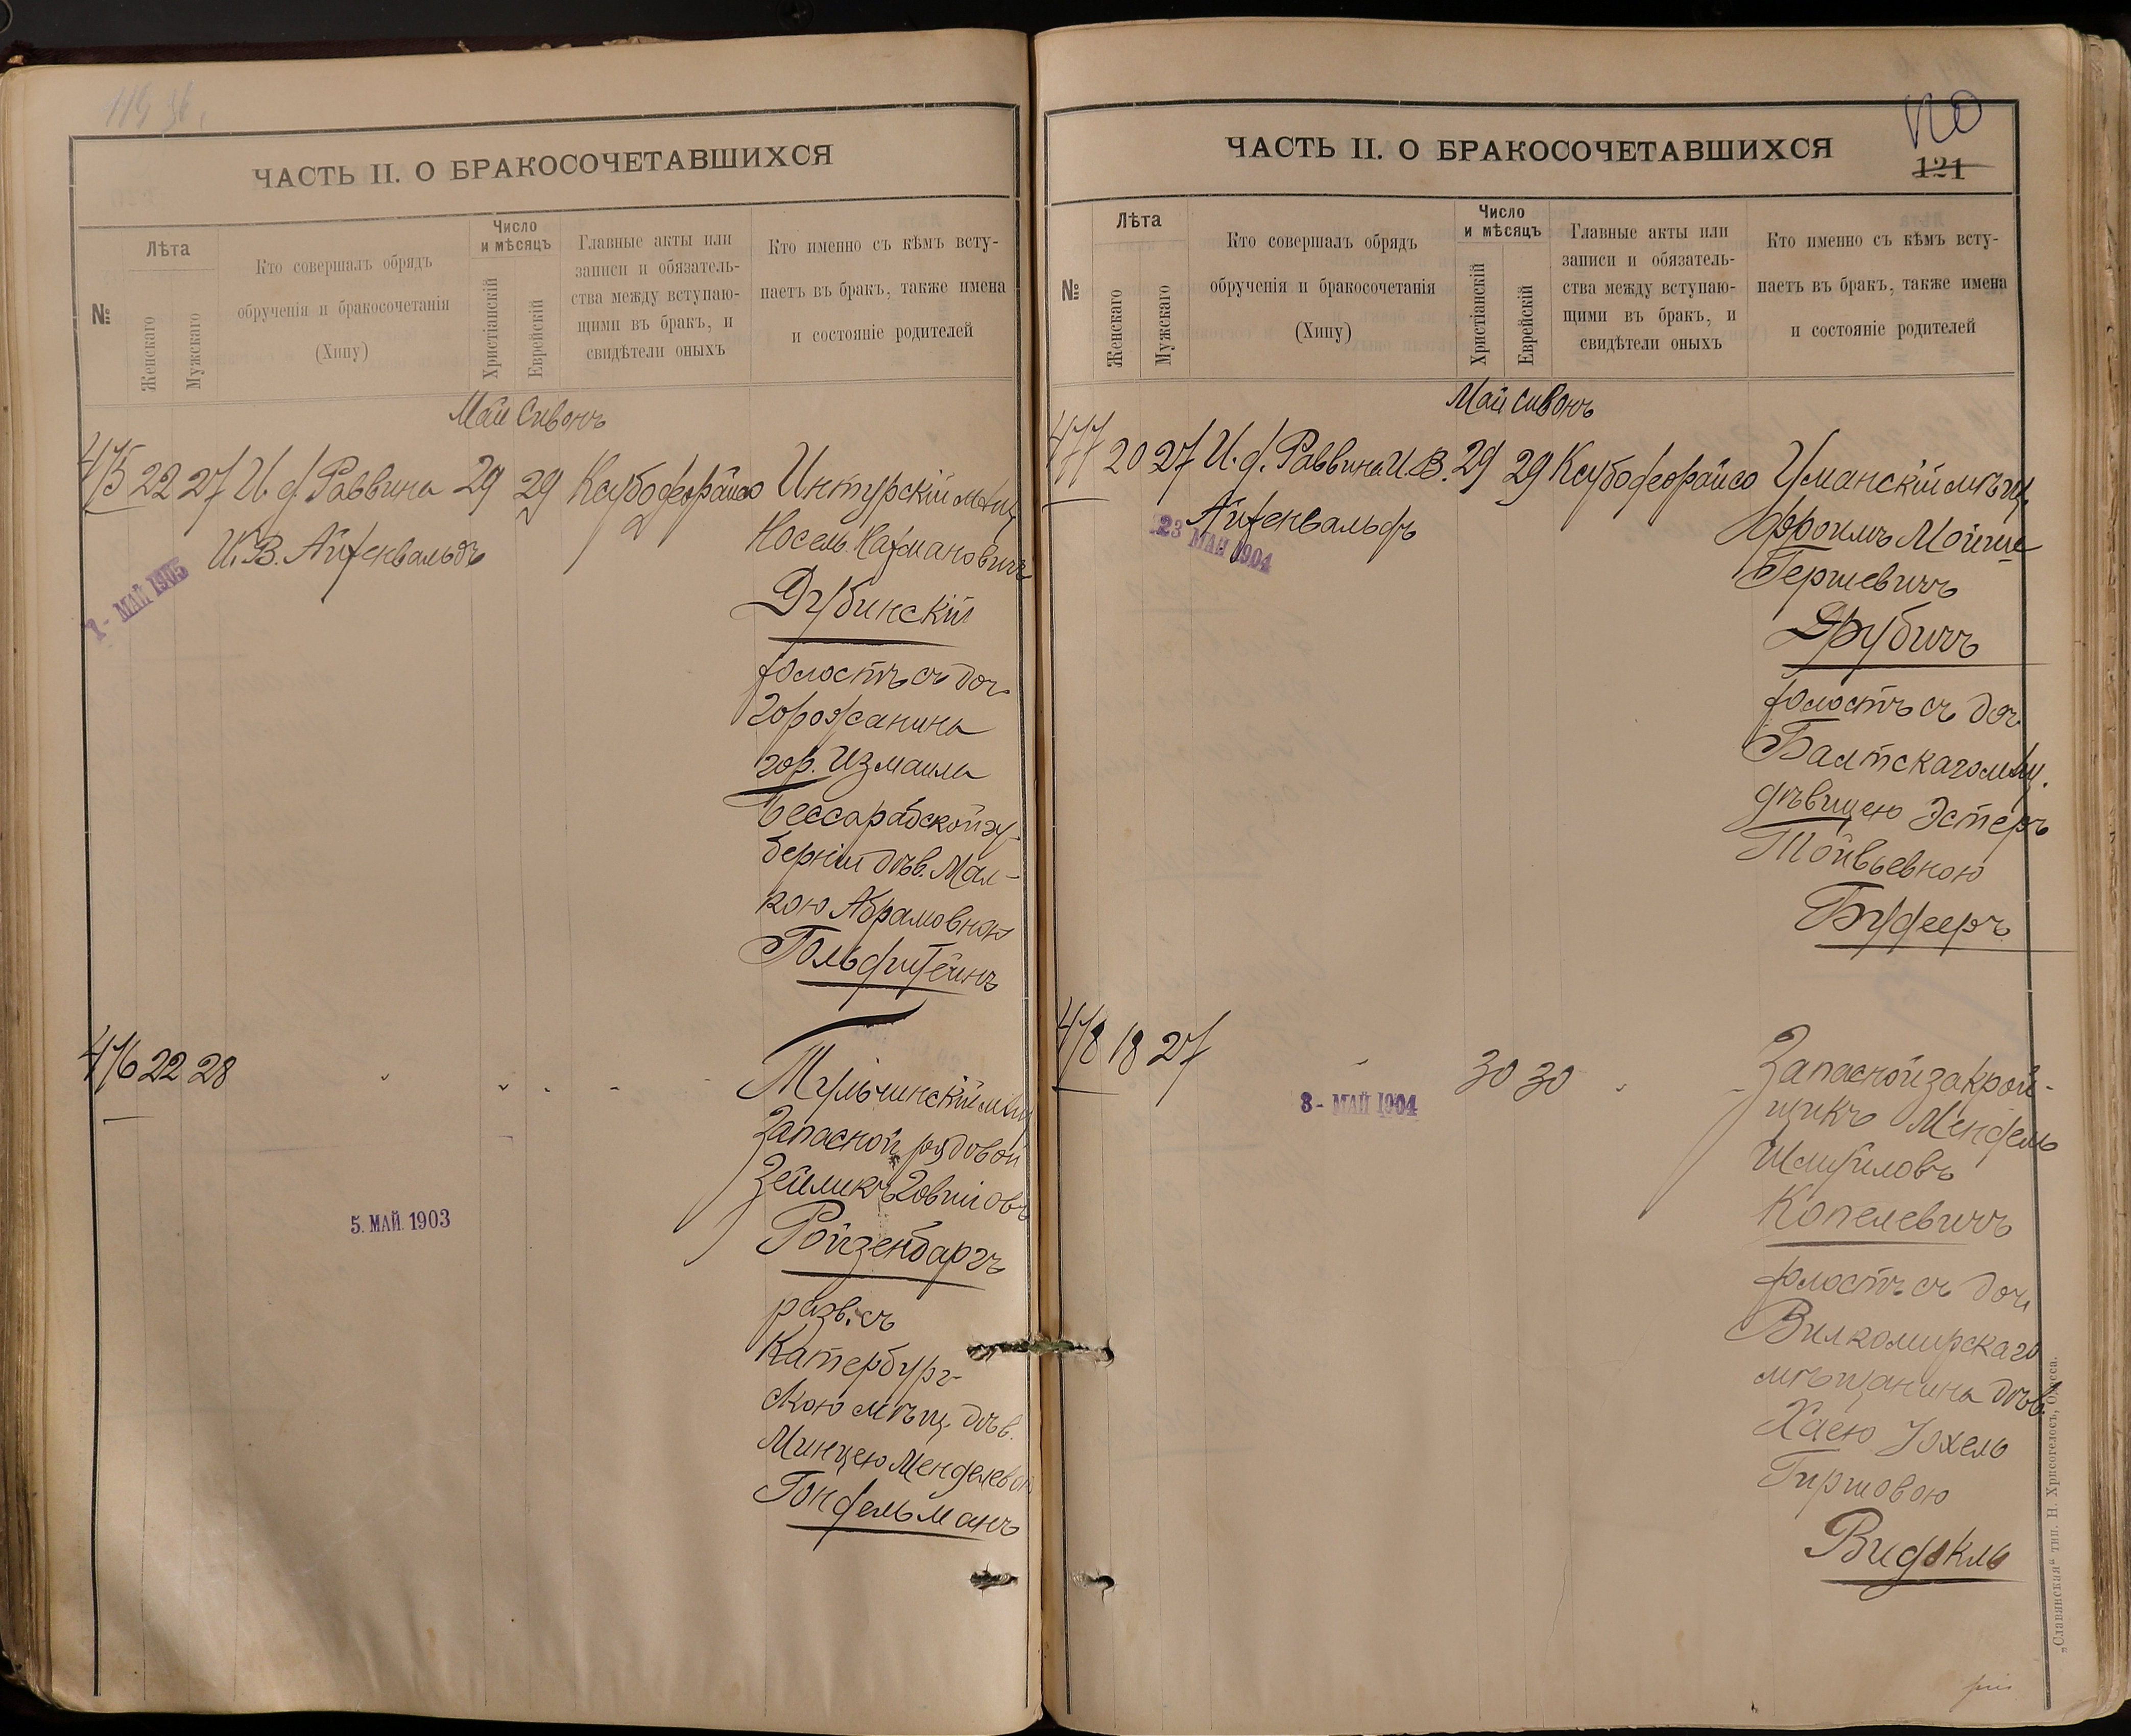 ЧАСТЬ II. О БРАКОСОЧЕТАВШИХСЯ
№
Лѣта
Женскаго
Мужскаго
Кто совершалъ обрядъ
обрученія и бракосочетанія
(Хипу)
Число
и мѣсяцъ
Христіанскій
Еврейскій
Главные акты или
записи и обязатель-
ства между вступаю-
щими въ бракъ, и
свидѣтели оныхъ
Кто именно съ кѣмъ всту-
паетъ въ бракъ, также имена
и состояніе родителей
Май Сивонъ
475 22 27 И. д. Раввина 29 29
И. В. Айзенвальдъ
1 - МАЙ 1905
мѣщ
Носель
Дубинскій
холостъ съ доч
горожанина
гор. Измаила
Бессарабской гу-
берніи дѣв. Мал-
кою Абрамовною
Гольдштейнъ
476 22 28
5. МАЙ. 1903
Тульчинскій мѣщ
Запасной рядовой
Зейликъ
Ройзенбаргъ
разв. съ
Катербург-
скою мѣщ. дѣв.
Минцею
Гондельманъ
ЧАСТЬ II. О БРАКОСОЧЕТАВШИХСЯ
120
121
№
Лѣта
Женскаго
Мужскаго
Кто совершалъ обрядъ
обрученія и бракосочетанія
(Хипу)
Число
и мѣсяцъ
Христіанскій
Еврейскій
Главные акты или
записи и обязатель-
ства между вступаю-
щими въ бракъ, и
свидѣтели оныхъ
Кто именно съ кѣмъ всту-
паетъ въ бракъ, также имена
и состояніе родителей
Май Сивонъ
477 20 27 И. д. Раввина И. В. 29 29
Айзенвальдъ
23 МАЙ 1904
Уманскій мѣщ.
Эфроимъ Мойше
Гершевичъ
Друбичъ
холостъ съ доч
Балтскаго мѣщ.
дѣвицею Эстеръ
Тойвьевною
478 18 27
30 30
3 - МАЙ 1904
Запасной закрой-
щикъ Мендель
Шмуйловъ
Копелевичъ
холостъ съ доч
Вилкомирскаго
мѣщанина дѣв.
Хаею
Гиршовою
„Славянская“ тип. Н. Хрисогелосъ, Одесса.